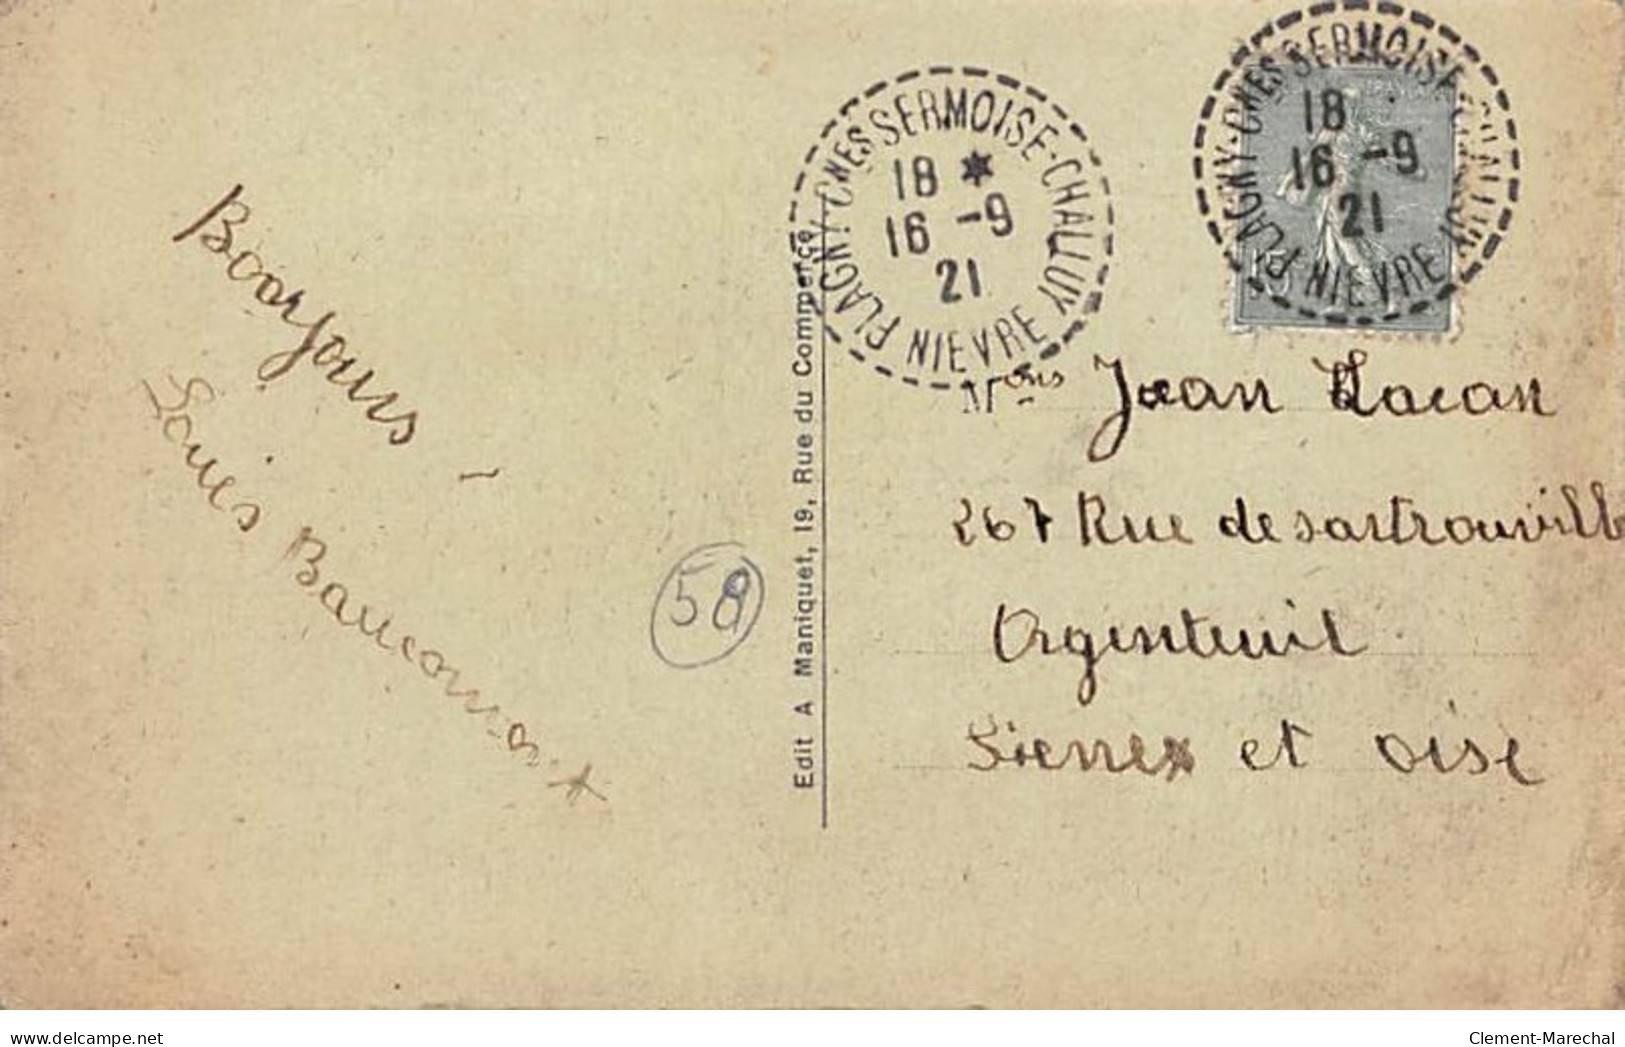 Bonjours
Louis
Edit A Maniquet, 19, Rue du Commerce
58
PLAGNY·CNES SERMOISE·CHALLUY
18 *
16 -9
21
NIEVRE
PLAGNY·CNES SERMOISE·CHALLUY
18
16 -9
21
NIEVRE
Mons Jean Lacan
267 Rue de sartrouville
Argenteuil
et oise
delcampe.net
Clement-Marechal